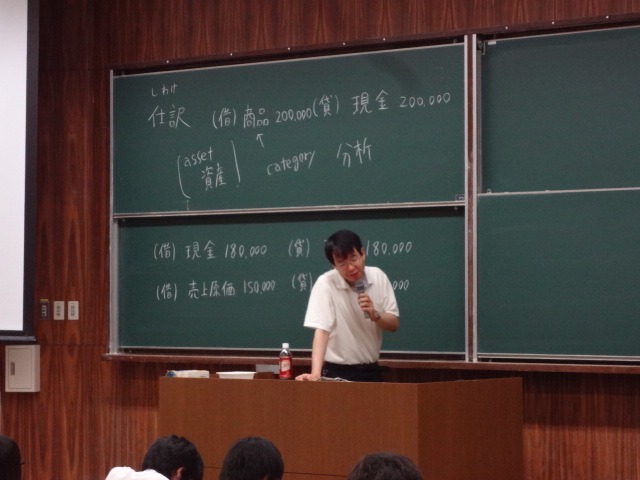 しわけ
仕訳 (借) 商品 200,000 (貸) 現金 200,000
↑
(asset
資産) category 分析
(借) 現金 180,000 (貸) 180,000
(借) 売上原価 150,000 (貸)